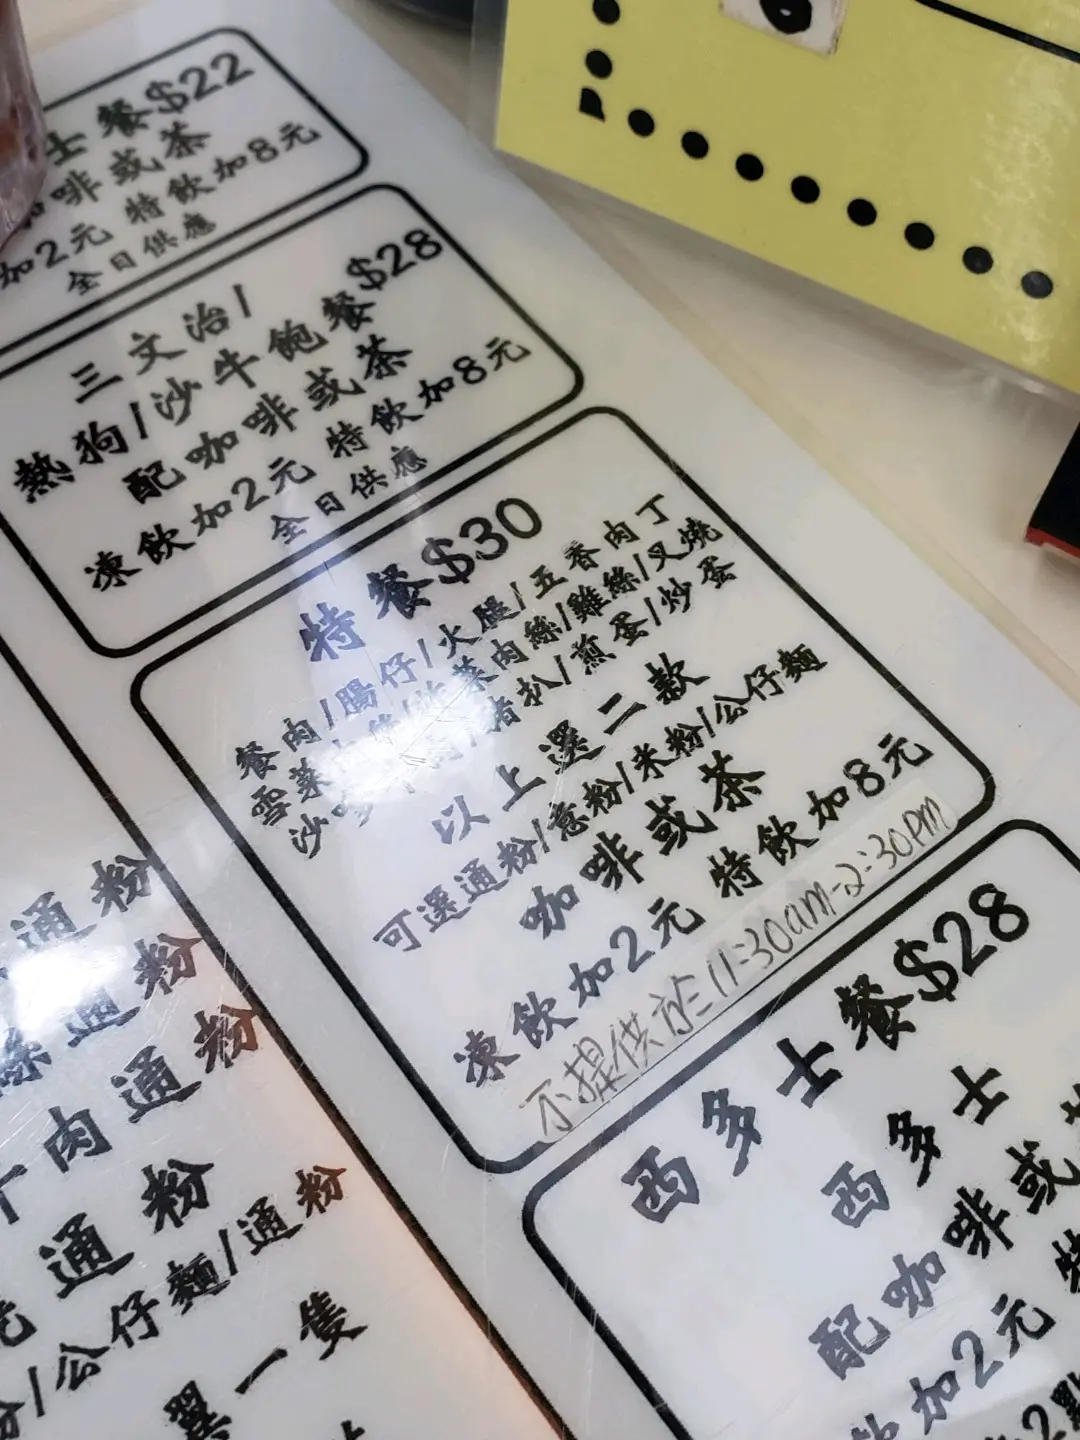 士餐$22
咖啡或茶
加2元 特飲加8元
全日供應
三文治/
熱狗/沙牛飽餐$28
配咖啡或茶
凍飲加2元 特飲加8元
全日供應
特餐$30
餐肉/腸仔/火腿/五香肉丁
雪菜肉絲/炸菜肉絲/雞絲/叉燒
沙嗲牛肉/豬扒/煎蛋/炒蛋
以上選二款
可選通粉/意粉/米粉/公仔麵
咖啡或茶
凍飲加2元 特飲加8元
不提供於11:30am-2:30pm
西多士餐$28
西多士
配咖啡或茶
飲加2元 特
2點
通粉
絲通粉
牛肉通粉
通粉
/公仔麵/通粉
翼一隻